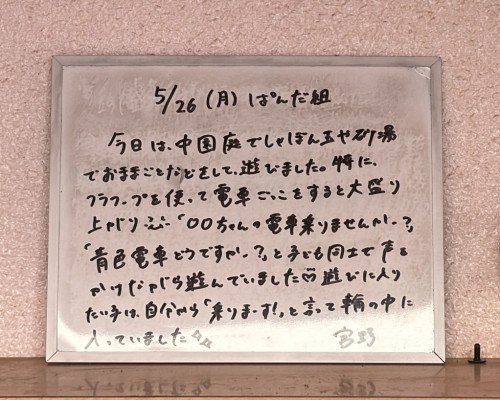 5/26 (月) ぱんだ組
今日は、中国庭でしゃぼん玉や砂場
でおままごとなどをして、遊びました。特に、
フラフープを使って電車ごっこをすると大盛り
上がり 「〇〇ちゃんの電車乗りませんか〜?」
「青色電車どうですか〜?」と子ども同士で声を
かけながら遊んでいました♡遊びに入り
たい子は、自分から「乗りまーす!」と言って輪の中に
入っていました☆☆
宮野